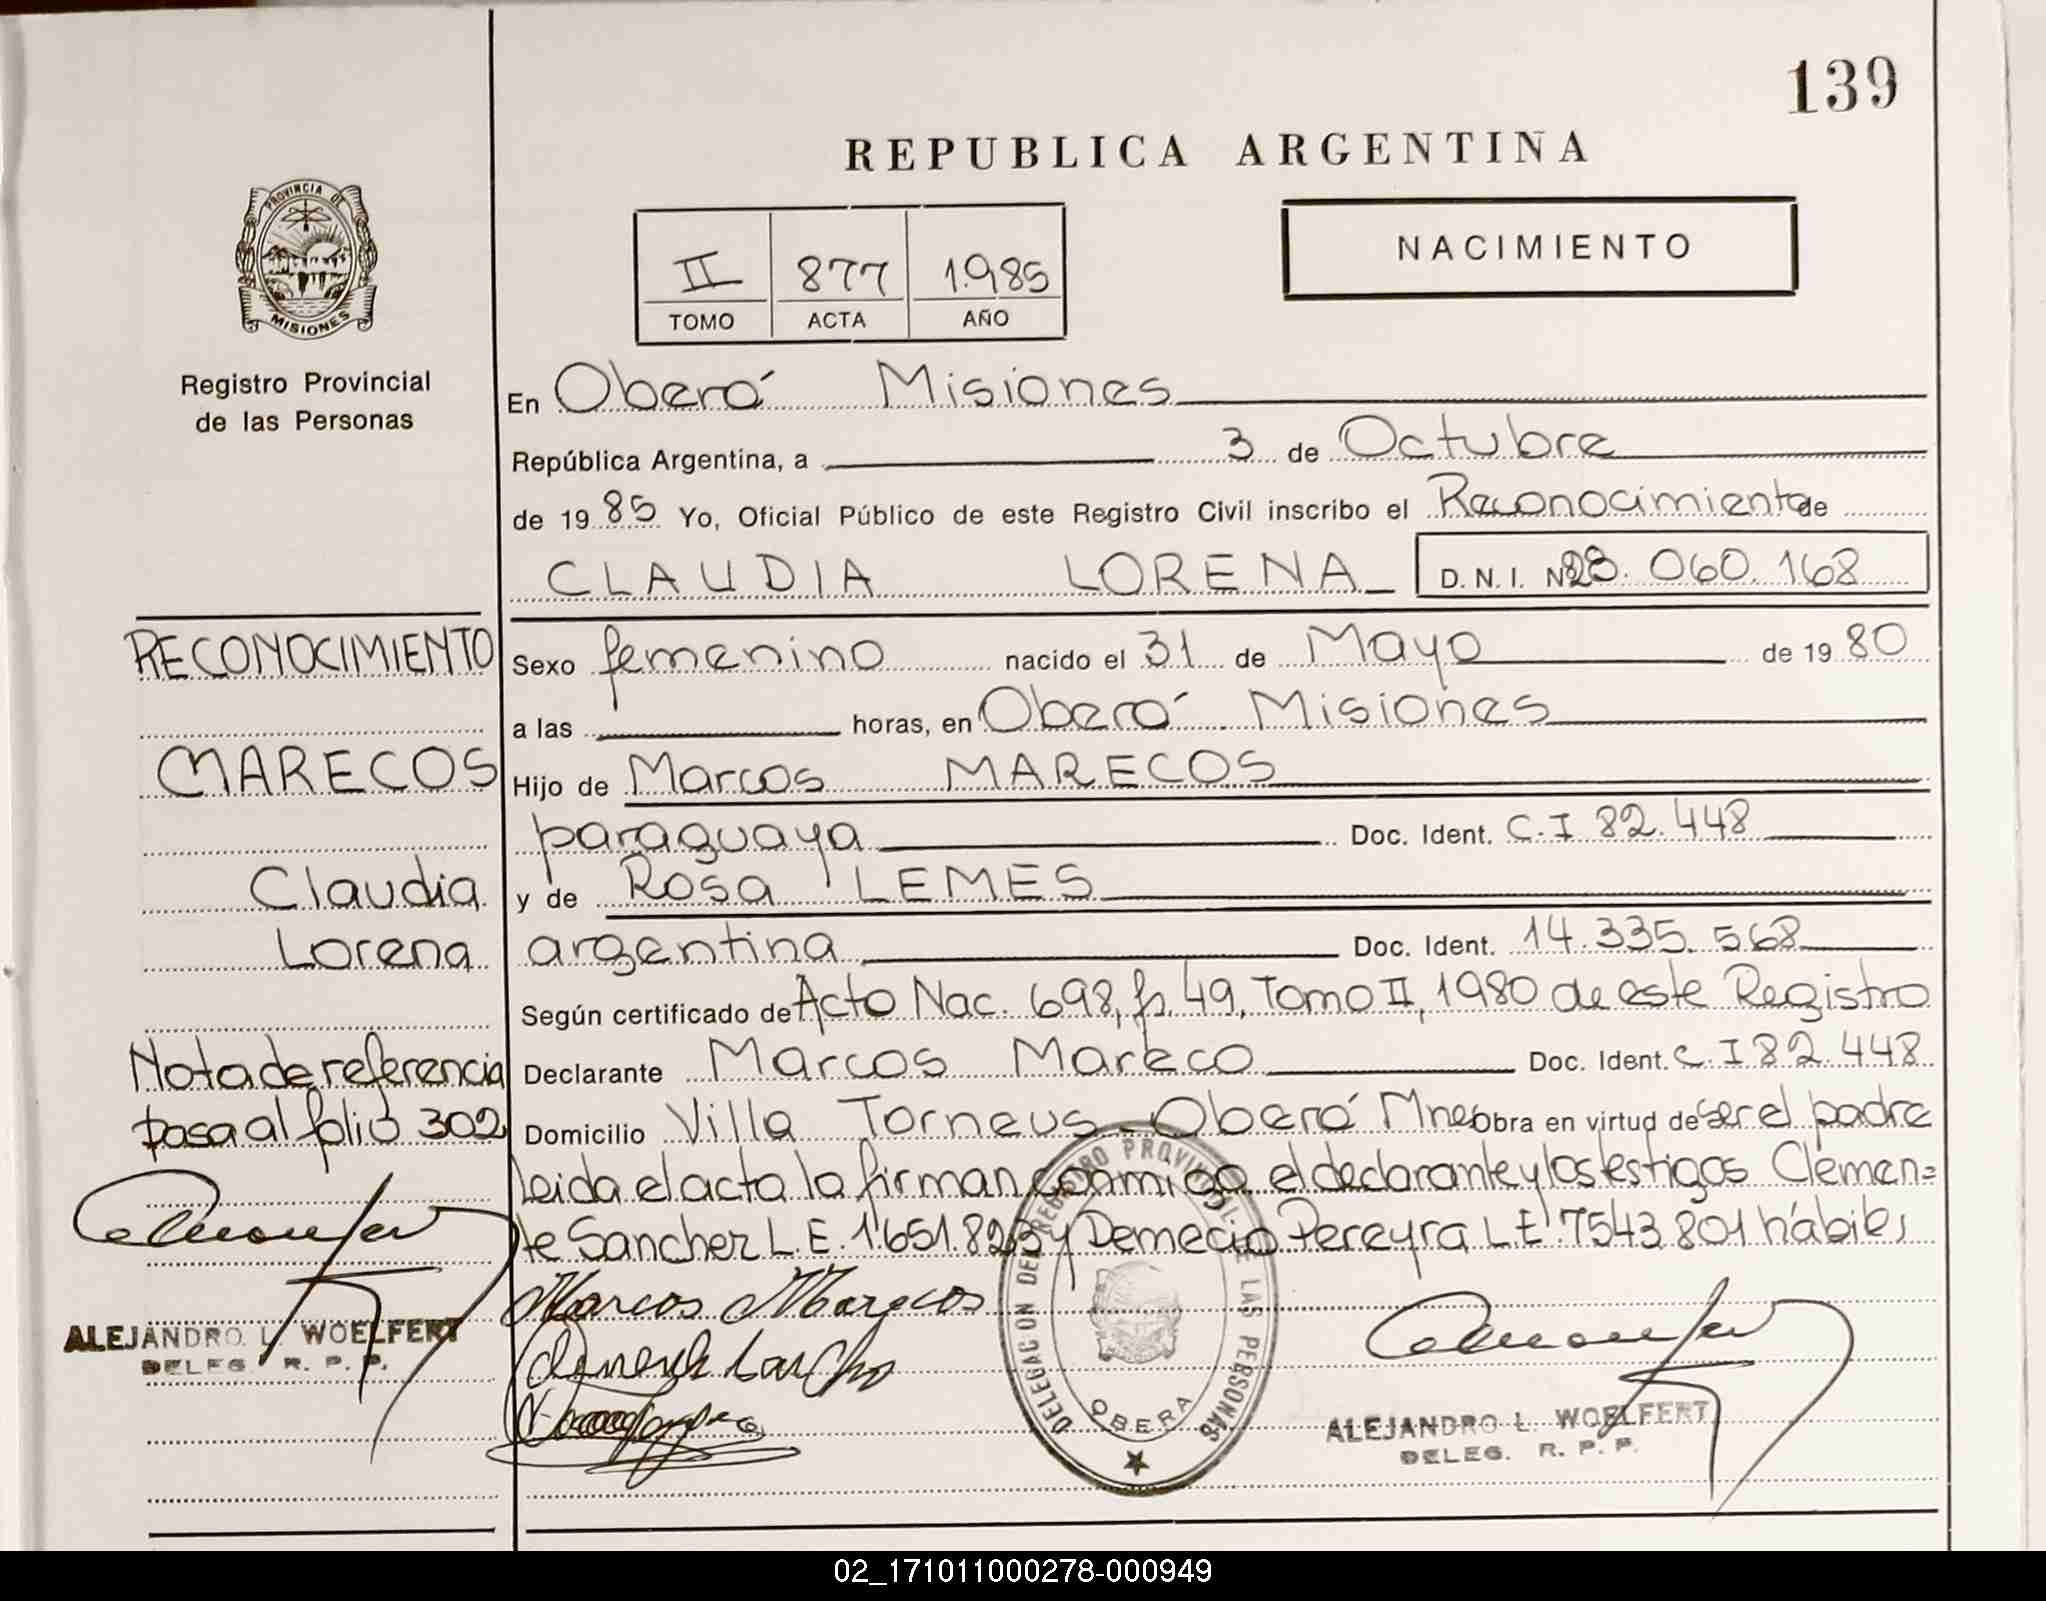 139
REPUBLICA ARGENTINA
PROVINCIA DE
MISIONES
Registro Provincial
de las Personas
II 877 1.985
TOMO ACTA AÑO
NACIMIENTO
En Oberá Misiones
República Argentina, a 3 de Octubre
de 19 85 Yo, Oficial Público de este Registro Civil inscribo el Reconocimiento de
CLAUDIA LORENA D. N. I. Nº 28.060.168
RECONOCIMIENTO
MARECOS
Claudia
Lorena
Nota de referencia
pasa al folio 302
ALEJANDRO L. WOELFERT
DELEG. R. P. P.
Sexo femenino nacido el 31 de Mayo de 19 80
a las horas, en Oberá Misiones
Hijo de Marcos MARECOS
paraguaya Doc. Ident. C.I 82.448
y de Rosa LEMES
argentina Doc. Ident. 14.335.568
Según certificado de Acto Nac. 698, fs. 49, Tomo II, 1980 de este Registro
Declarante Marcos Mareco Doc. Ident. C.I 82.448
Domicilio Villa Torneus Oberá Mnes Obra en virtud de ser el padre
leida el acta la firman conmigo el declarante y los testigos Clemen=
te Sanchez L.E. 1.651.823 y Demecio Pereyra L.E. 7543.801 hábiles
Marcos Marecos
DELEGACION DEL REGISTRO PROVINCIAL DE LAS PERSONAS
OBERA
ALEJANDRO L. WOELFERT
DELEG. R. P. P.
02_171011000278-000949